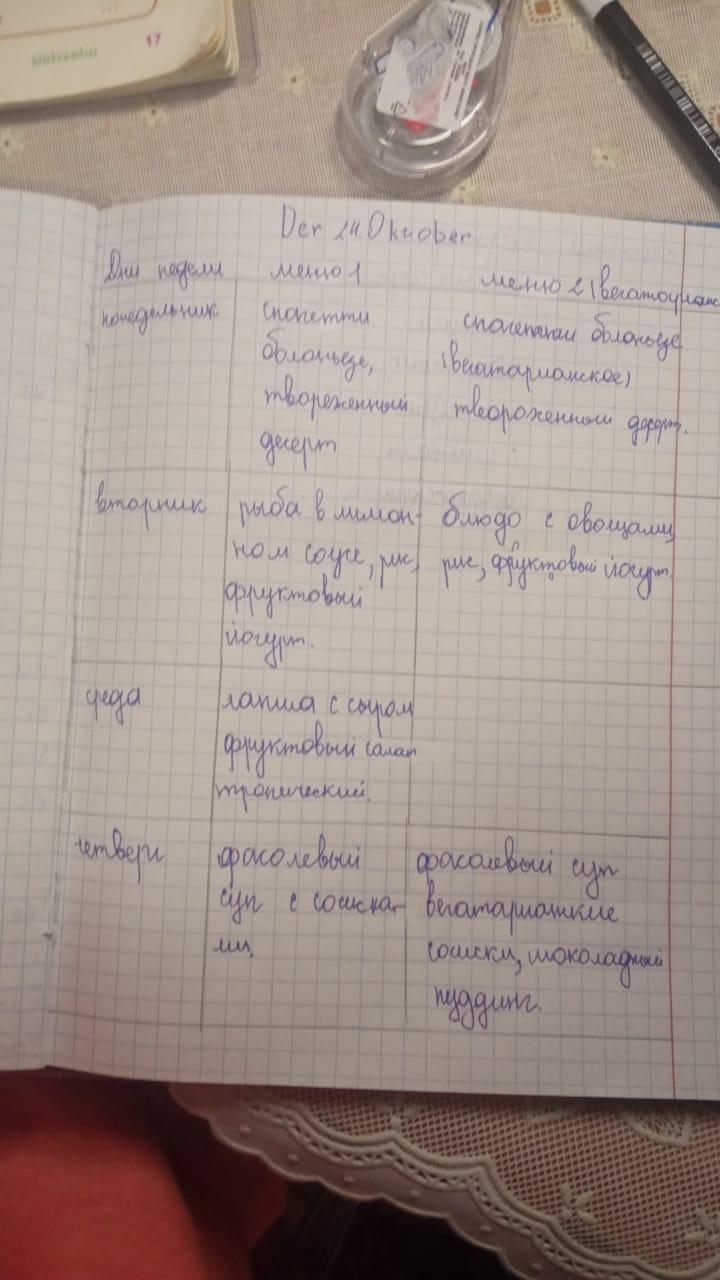 17
siebzehn
Der 24. Oktober
Дни недели меню 1 меню 2 (вегатарианс
понедельник спагетти спагеттии болоньезе
болоньезе, (вегатарианское)
твореженный твороженный десерт.
десерт
вторник рыба в лимон- блюдо с овощами,
ном соусе, рис, рис, фруктовый йогурт.
фруктовый
йогурт.
среда лапша с сыром
фруктовый салат
тропический.
четверг фасолевый фасолевый суп
суп с сосиска- вегатариански
ми. сосиски, шоколадный
пуддинг.